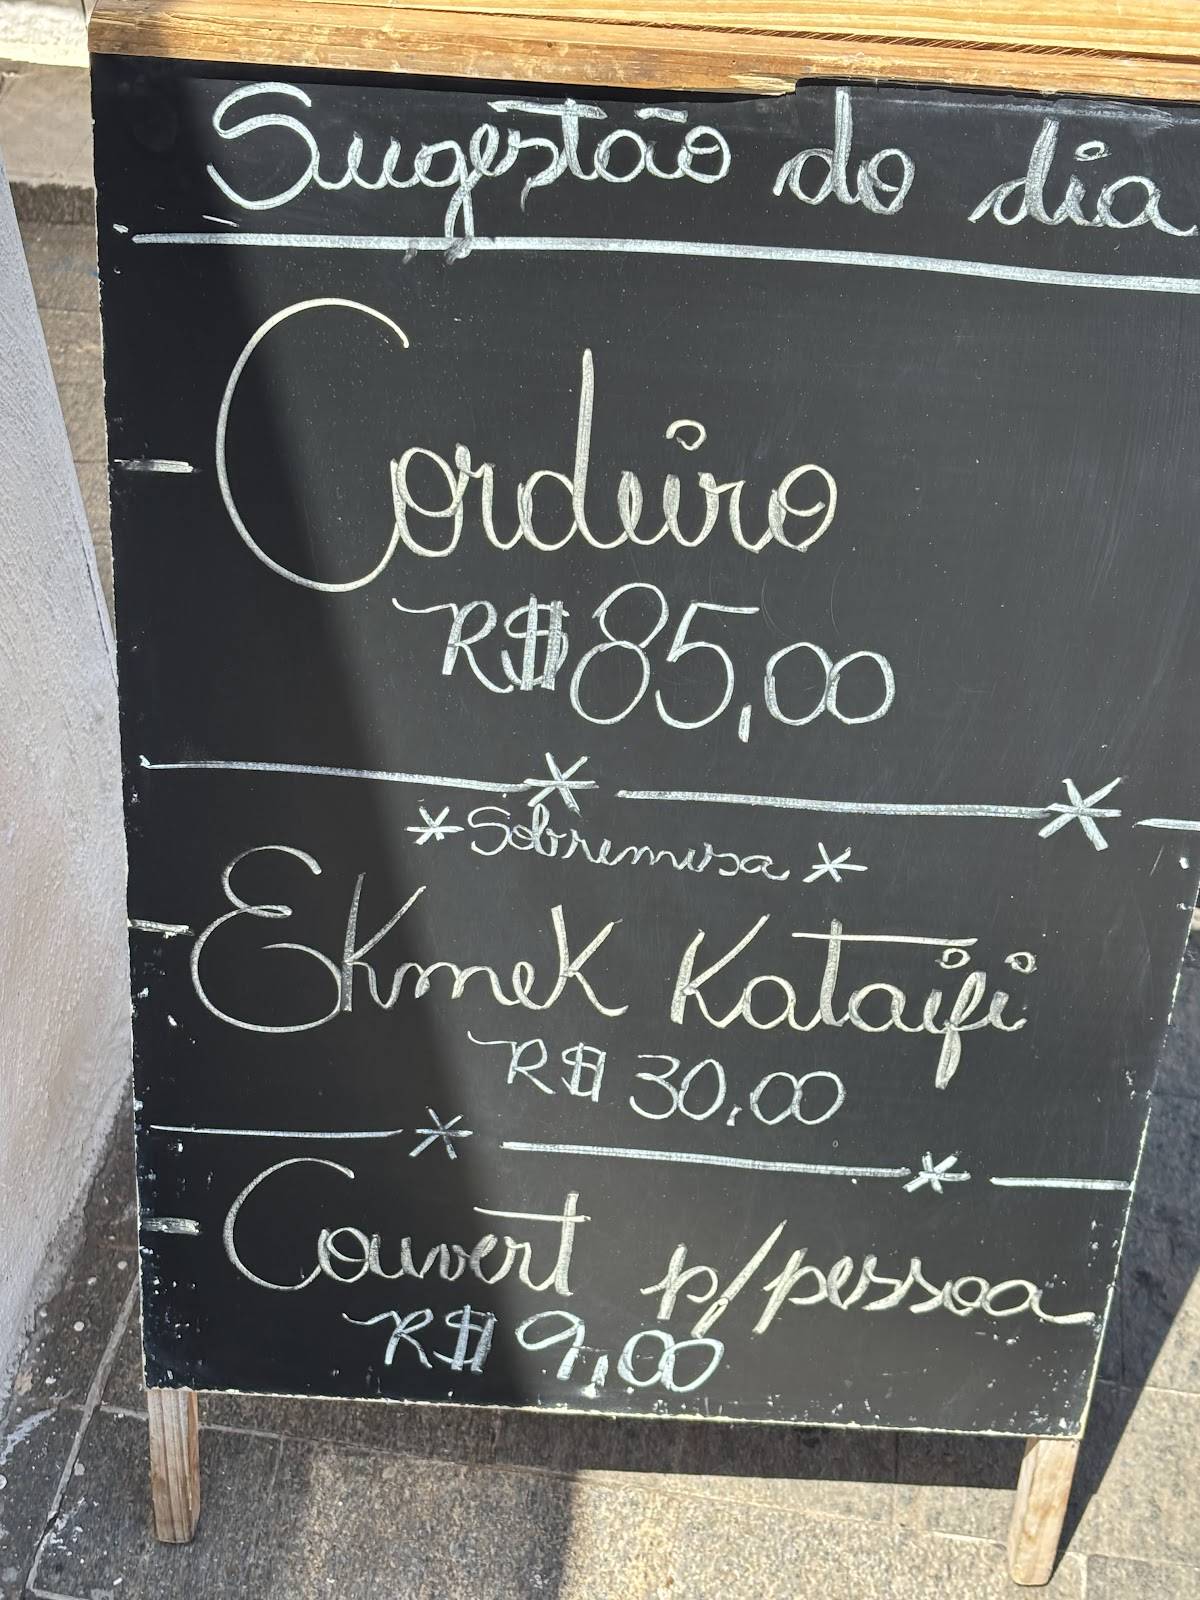 Sugestão do dia
- Cordeiro
R$ 85,00
* Sobremesa *
- Ekmek Kataifi
R$ 30,00
- Couvert p/pessoa
R$ 9,00